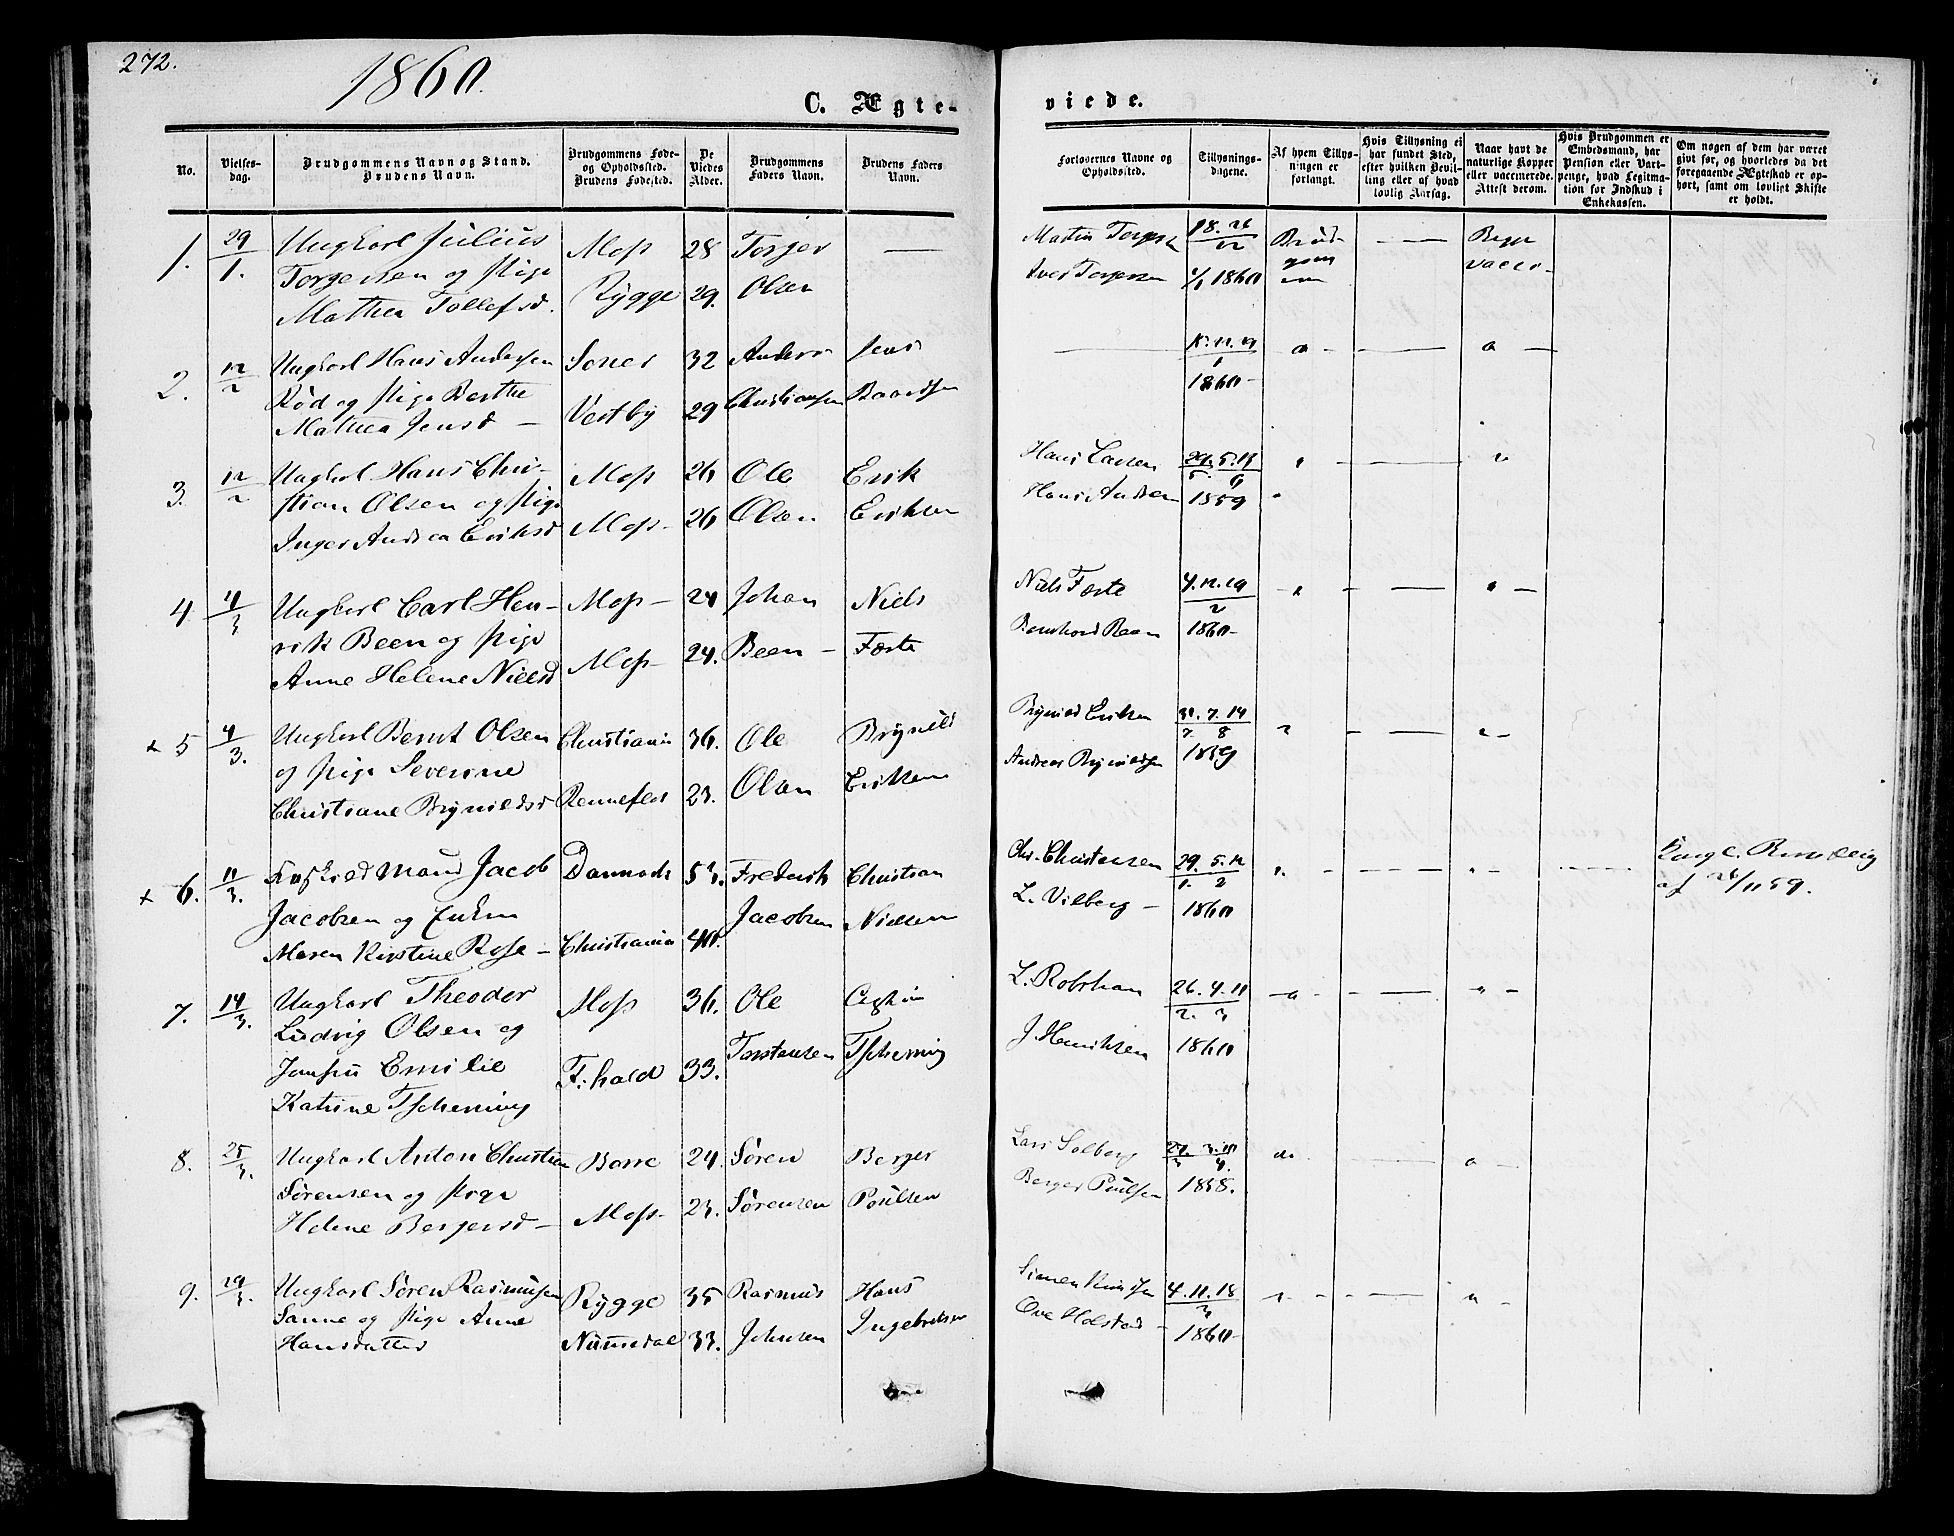 272.
1860.
C. Ægte-
viede.
No.
Vielses-
dag.
Brudgommens Navn og Stand.
Brudens Navn.
Brudgommens Føde-
og Opholdssted.
Brudens Fødested.
De
Viedes
Alder.
Brudgommens
Faders Navn.
Brudens Faders
Navn.
Forlovernes Navne og
Opholdssted.
Tillysnings-
dagene.
Af hvem Tillys-
ningen er
forlangt.
Hvis Tillysning ei
har fundet Sted,
efter hvilken Bevil-
ling eller af hvad
lovlig Aarsag.
Naar havt de
naturlige Kopper
eller vaccinerede.
Attest derom.
Hvis Brudgommen er
Embedsmand, har
Pension eller Vart-
penge, hvad Legitima-
tion for Indskud i
Enkekassen.
Om nogen af dem har været
gift før, og hvorledes da det
foregaaende Ægteskab er op-
hørt, samt om lovligt Skifte
er holdt.
1. 29/1. Ungkarl Julius Moss 28 Torger —
Torgersen og Pige
Mathea Tollefsd. Rygge 29. Olsen
Martin Torgersen 18. 26/12 Brud-
gom
men
Begge
vacc.
Iver Torgersen 1/1 1860
2. 12/2 Ungkarl Hans Andersen Soner 32 Anders Jens
Röd og Pige Berthe
Mathea Jensd — Vestby 29 Christiansen Baardsen
1860-
3. 12/2 Ungkarl Hans Chri- Moss 26 Ole Erik
stian Olsen og Pige
Inger Andrea Eriksd Moss- 26 Olsen Eriksen
Hans Larsen
Hans Andsen 1859
4 4/3 Ungkarl Carl Hen- Moss- 24 Johan Niels
rik Been og Pige
Anne Helene Nielsd Moss- 24. Been — Førte
Niels Førte 4. 12. 19/2
Bernhard Been 1860-
x 5 4/3. Ungkarl Bernt Olsen Christiania 36. Ole Brynild
og Pige Severine
Christiane Brynildsd Rennefled 23. Olsen Eriksen
Brynild Eriksen 31. 7. 14/7. 8
Andreas Brynildsen 1859
x 6. 11/3. Mand Jacob Danmark 53. Frederik Christian
Jacobsen og Enken Jacobsen Nielsen
Maren Kirstine Rosse — Christiania 40.
Chr. Christensen 29. 5. 12/1. 2
L. Vilberg — 1860
Kongl. Bevilling
af 26/11 59.
7. 14/3. Ungkarl Theodor Moss 36. Ole
Ludvig Olsen og
Jomfru Emilie F. hald 33. Torstensen Tscherning
Katrine Tscherning
L. Robsham 26. 4. 11/2. 3
J Henriksen 1860
8. 25/3. Ungkarl Anton Christian Borre 24. Sören Berger
Sörensen og Pige
Helene Bergersd — Moss- 23. Sörensen Poulsen
Lars Solberg do
Berger Poulsen 1858.
9. 29/3. Ungkarl Sören Rasmusen Rygge 35 Rasmus Hans
Sanne og Pige Anne
Hansdatter Numedal 33. Johnsen Ingebretsen
Simen Knudsen 4. 11. 18/3
Ove Holstad — 1860-